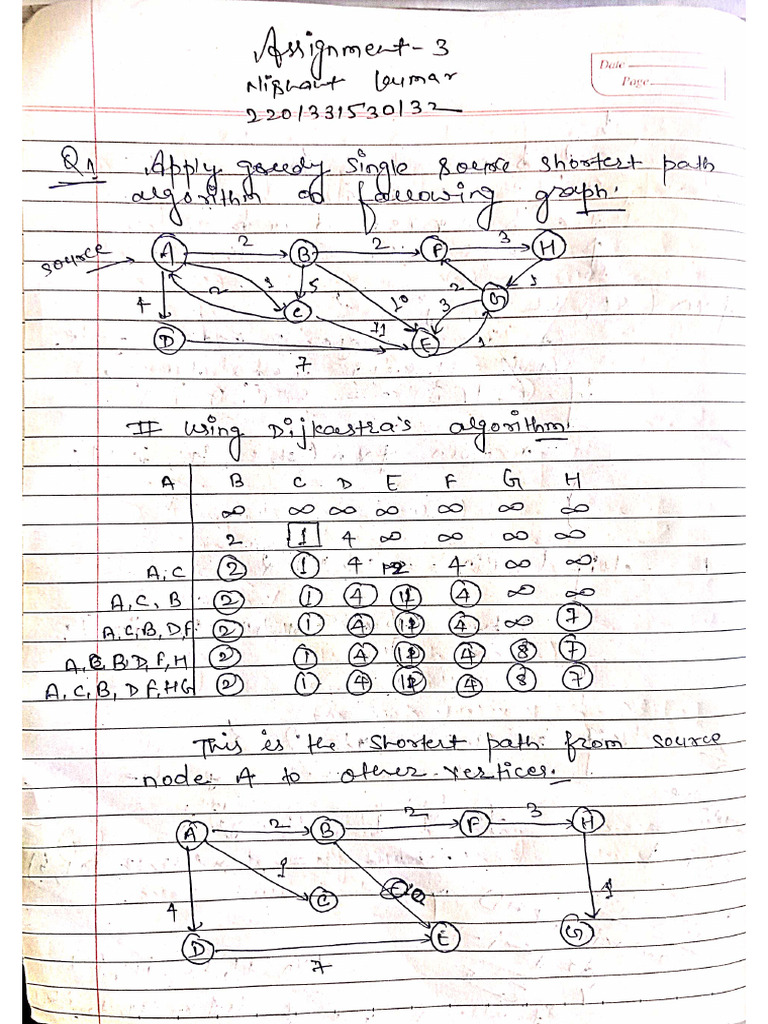 Assignment-3
Date
Page
Nishant Kumar
2201331530132
Q1 Apply greedy single source shortest path
algorithm of following graph.
source A 2 B 2 F 3 H
4 2 1 5 10 2 3 1
C 11 G
D 7 E 1
# using Dijkastra's algorithm
A B C D E F G H
∞ ∞ ∞ ∞ ∞ ∞ ∞
2 1 4 ∞ ∞ ∞ ∞
A, C 2 1 4 12 4 ∞ ∞
A, C, B 2 1 4 4 ∞ ∞
A, C, B, D, F 2 1 4 4 ∞ 7
A, C, B, D, F, H 2 1 4 4 8 7
A, C, B, D F, H G 2 1 4 4 8 7
This is the shortest path from source
node A to other vertices.
A 2 B 2 F 3 H
1 C 1
4
D 7 E G